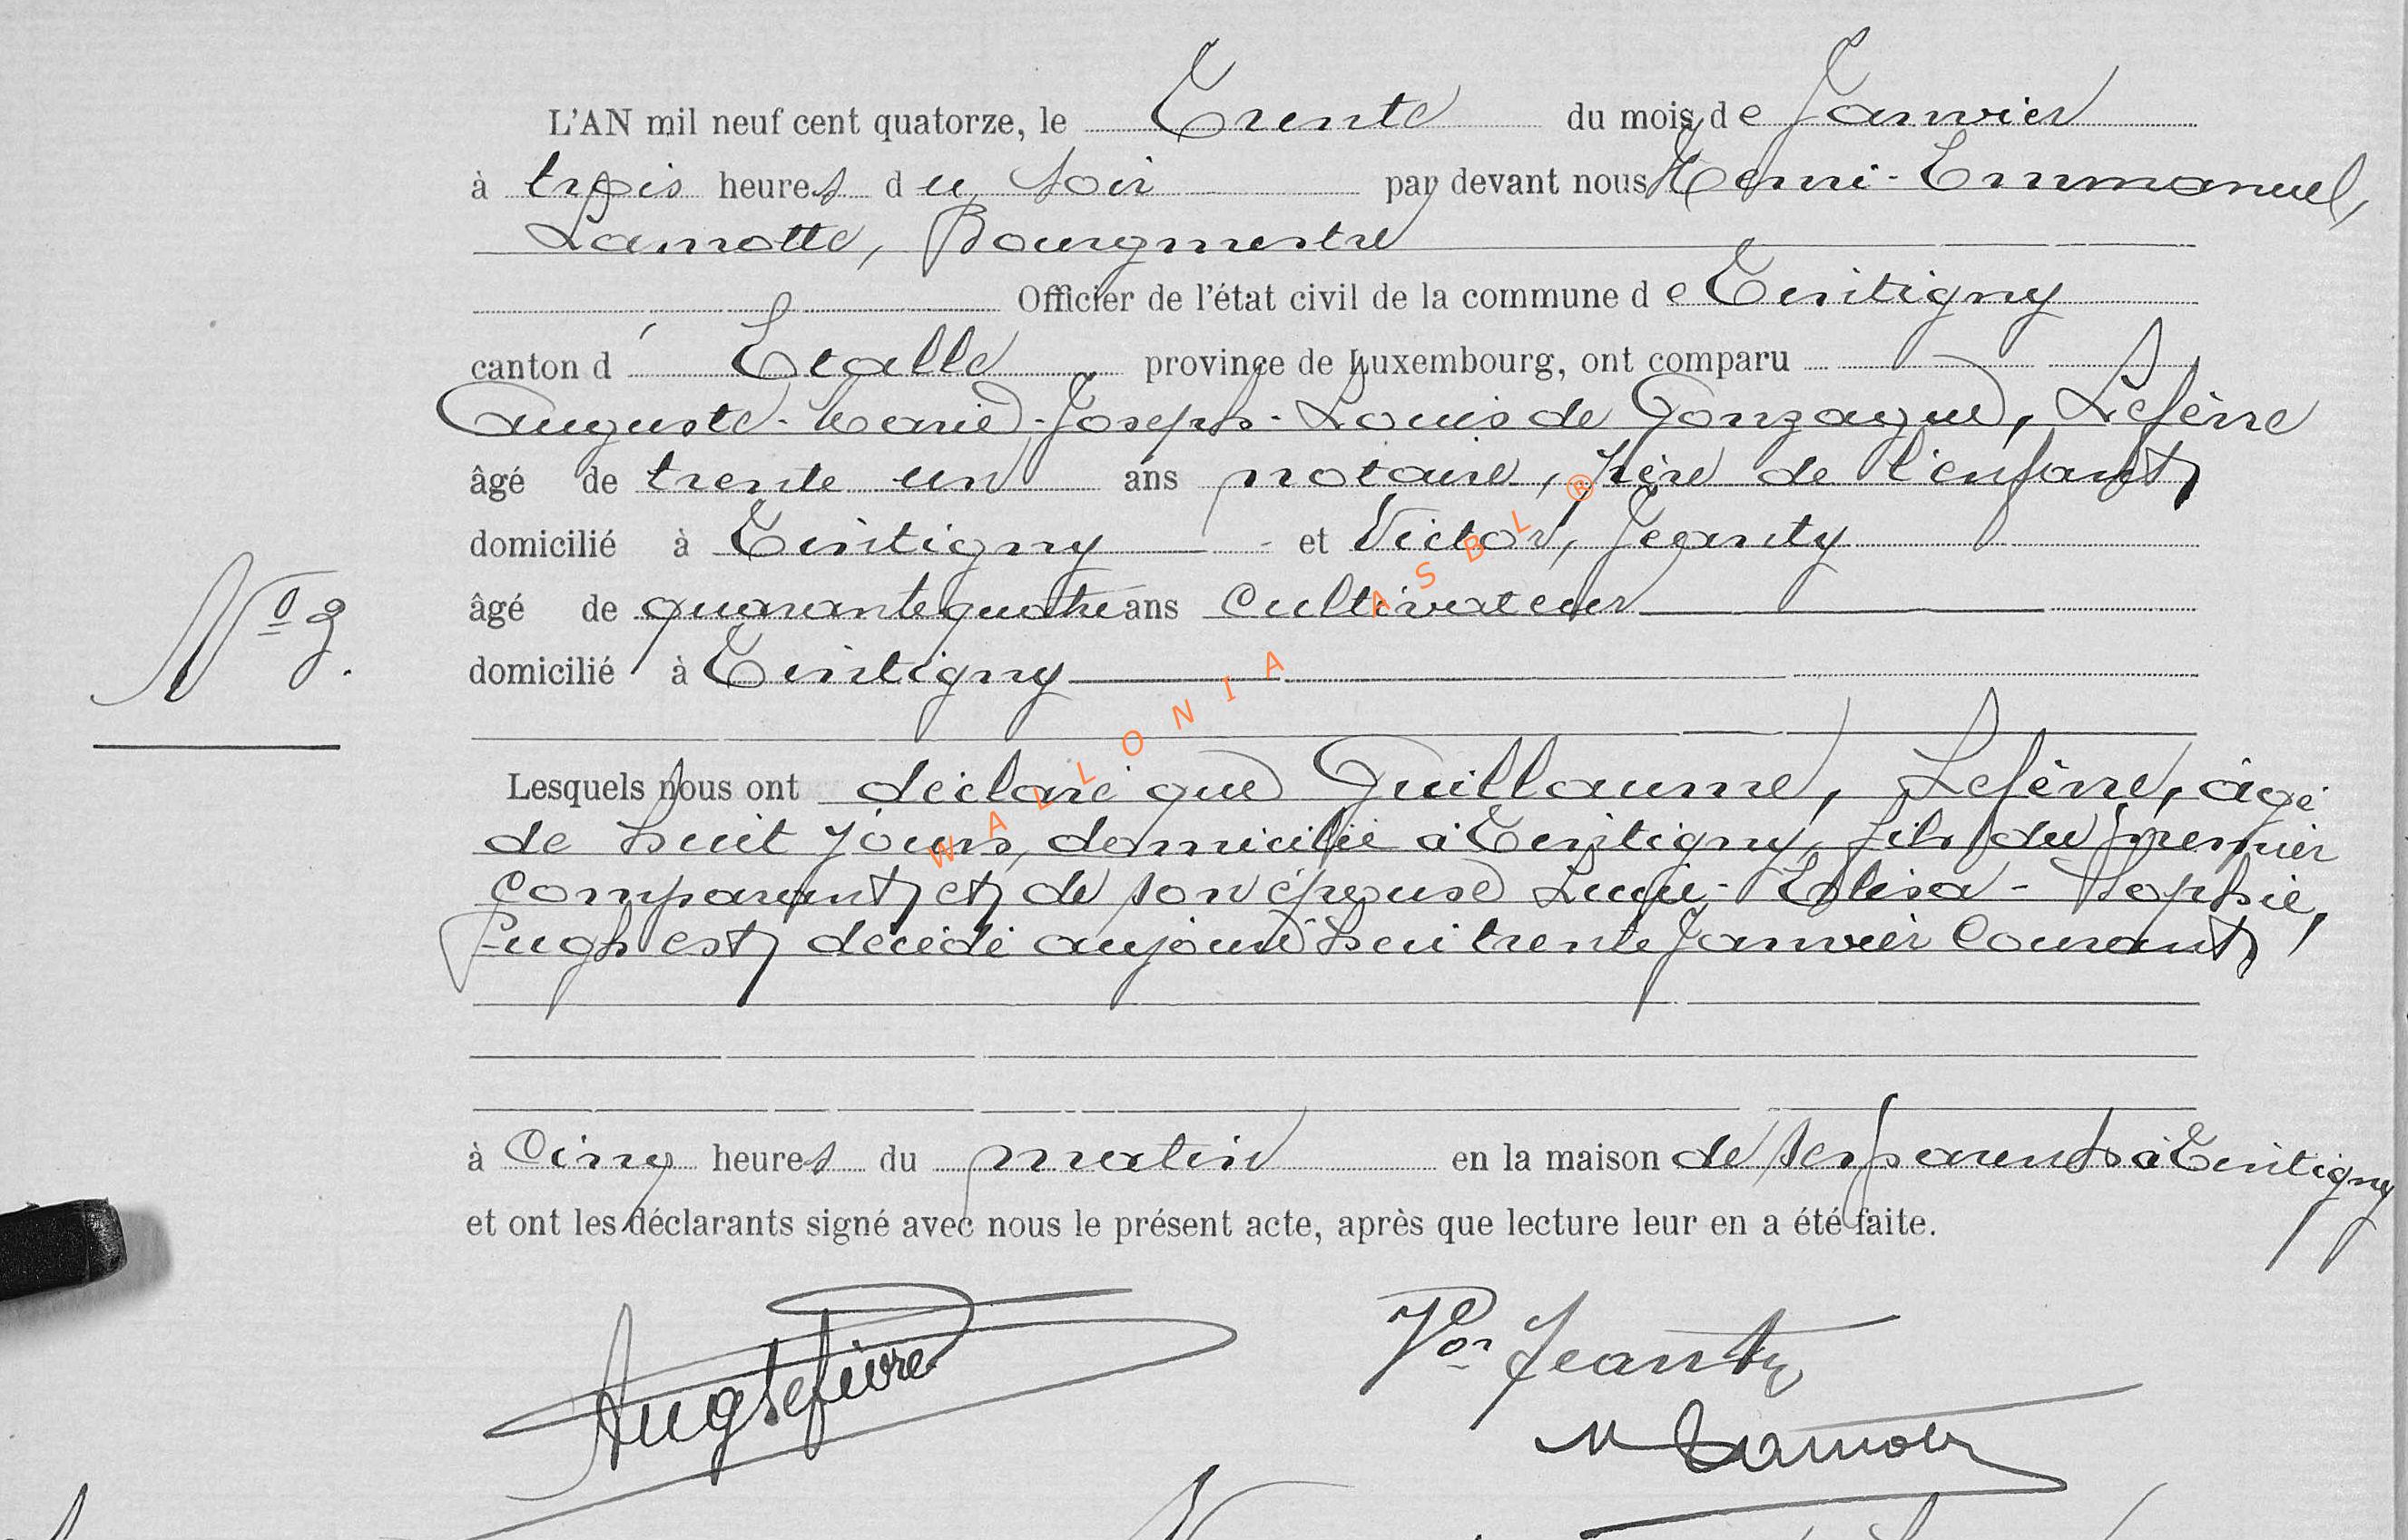 L'AN mil neuf cent quatorze, le Trente du mois de Janvier
à trois heures du soir par devant nous Henri-Emmanuel,
Lamotte, Bourgmestre
Officier de l'état civil de la commune de Tintigny
canton d'Etalle province de Luxembourg, ont comparu
Auguste-Marie-Joseph-Louis de Gonzague, Lefèvre
âgé de trente un ans notaire, père de l'enfant
domicilié à Tintigny et Victor, Jeanty
âgé de quarante quatre ans cultivateur
domicilié à Tintigny
Nº 9.
Lesquels nous ont déclaré que Guillaume, Lefèvre, âgé
de huit jours, domicilié à Tintigny, fils du premier
comparant et de son épouse Lucie-Elisa-Sophie,
Pugh est décédé aujourd'hui trente Janvier courant,
à cinq heures du matin en la maison de ses parents à Tintigny
et ont les déclarants signé avec nous le présent acte, après que lecture leur en a été faite.
Aug Lefèvre
Vor Jeanty
H Lamotte
WALLONIA ASBL ®